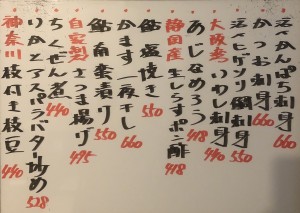 活〆かんぱち刺身 660
かつお刺身 660
活〆ヒゲソリ鯛刺身 550
大阪産いわし刺身 440
あじなめろう 418
静岡産生しらすポン酢 418
鮎塩焼き 550
かます一夜干し 660
鮎南蛮漬り 550
自家製さつま揚げ 495
ちくぜん煮 440
いかとアスパラバター炒め 528
神奈川枝付き枝豆 440